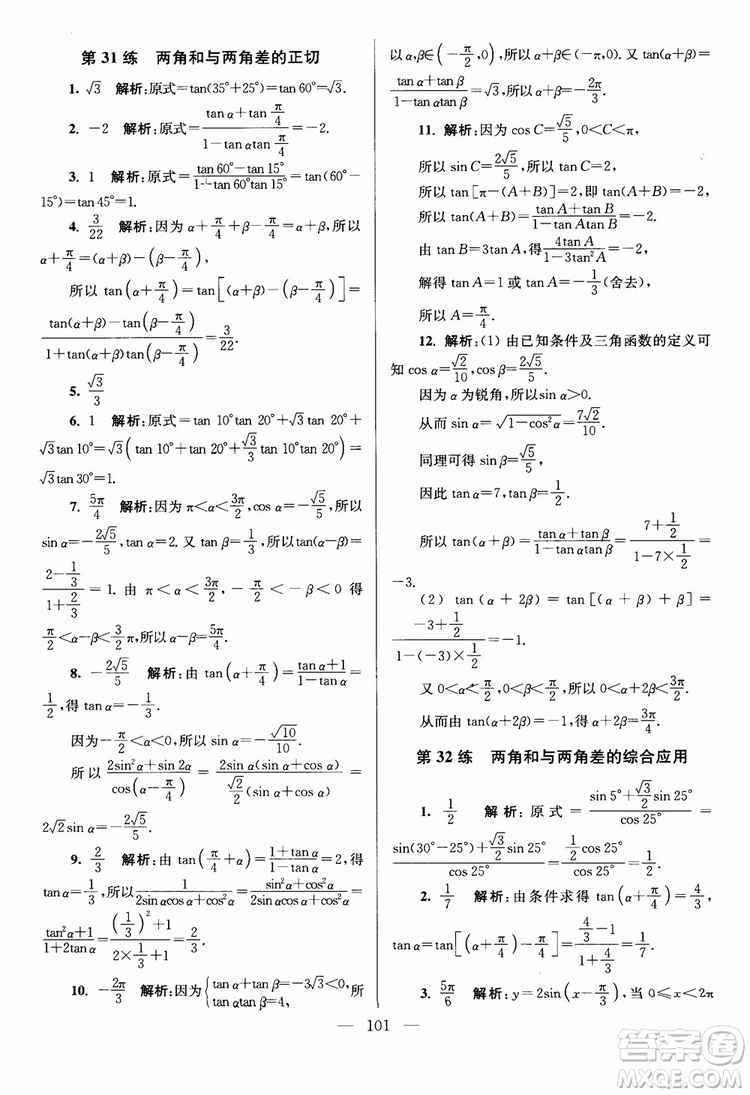 第 31 练　两角和与两角差的正切
1. √3　解析:原式=tan(35°+25°)=tan 60°=√3.
2. −2　解析:原式=(tan α+tan π/4)/(1−tan αtan π/4)=−2.
3. 1　解析:原式=(tan 60°−tan 15°)/(1+tan 60°tan 15°)=tan(60°−
15°)=tan 45°=1.
4. 3/22　解析:因为 α+π/4+β−π/4=α+β,所以
α+π/4=(α+β)−(β−π/4),
所以 tan(α+π/4)=tan[(α+β)−(β−π/4)]=
(tan(α+β)−tan(β−π/4))/(1+tan(α+β)tan(β−π/4))=3/22.
5. √3/3
6. 1　解析:原式=tan 10°tan 20°+√3 tan 20°+
√3tan 10°=√3(tan 10°+tan 20°+√3/3 tan 10°tan 20°)=
√3tan 30°=1.
7. 5π/4　解析:因为 π<α<3π/2,cos α=−√5/5,所以
sin α=−2√5/5,tan α=2. 又 tan β=1/3,所以tan(α−β)=
(2−1/3)/(1+2/3)=1. 由 π<α<3π/2,−π/2<−β<0 得
π/2<α−β<3/2π,所以 α−β=5π/4.
8. −2√5/5　解析:由 tan(α+π/4)=(tan α+1)/(1−tan α)=
1/2,得 tan α=−1/3.
因为−π/2<α<0,所以 sin α=−√10/10.
所以 (2sin²α+sin 2α)/cos(α−π/4)=2sin α(sin α+cos α)/(√2/2(sin α+cos α))=
2√2sin α=−2√5/5.
9. 2/3　解析:由 tan(π/4+α)=(1+tan α)/(1−tan α)=2,所以
tan α=1/3,所以 1/(2sin αcos α+cos²α)=(sin²α+cos²α)/(2sin αcos α+cos²α)=
(tan²α+1)/(1+2tan α)=((1/3)²+1)/(2×1/3+1)=2/3.
10. −2π/3　解析:因为{tan α+tan β=−3√3<0, tan αtan β=4,　所
以 α,β∈(−π/2,0),所以 α+β∈(−π,0),又 tan(α+β)=
(tan α+tan β)/(1−tan αtan β)=√3,所以 α+β=−2π/3.
11. 解析:因为 cos C=√5/5,0<C<π,
所以 sin C=2√5/5,所以 tan C=2.
所以 tan[π−(A+B)]=2,即 tan(A+B)=−2.
所以 tan(A+B)=(tan A+tan B)/(1−tan Atan B)=−2.
由 tan B=3tan A,得4tan A/(1−3tan²A)=−2,
解得 tan A=1 或 tan A=−1/3(舍去),
所以 A=π/4.
12. 解析:(1) 由已知条件及三角函数的定义可
知 cos α=√2/10,cos β=2√5/5.
因为 α 为锐角,所以sin α>0.
从而 sin α=√(1−cos²α)=7√2/10.
同理可得 sin β=√5/5.
因此 tan α=7,tan β=1/2.
所以 tan(α+β)=(tan α+tan β)/(1−tan αtan β)=(7+1/2)/(1−7×1/2)=
−3.
(2) tan(α+2β)=tan[(α+β)+β]=
(−3+1/2)/(1−(−3)×1/2)=−1.
又 0<α<π/2,0<β<π/2,所以 0<α+2β<3π/2.
从而由 tan(α+2β)=−1,得 α+2β=3π/4.
第 32 练　两角和与两角差的综合应用
1. 1/2　解析:原式=(sin 5°+√3/2 sin 25°)/cos 25°=
(sin(30°−25°)+√3/2 sin 25°)/cos 25°=(1/2 cos 25°)/cos 25°=1/2.
2. 1/7　解析:由条件求得 tan(α+π/4)=4/3,
tan α=tan[(α+π/4)−π/4]=(4/3−1)/(1+4/3)=1/7.
3. 5π/6　解析:y=2sin(x−π/3),当 0≤x<2π
— 101 —
答案圈
MXQE.COM